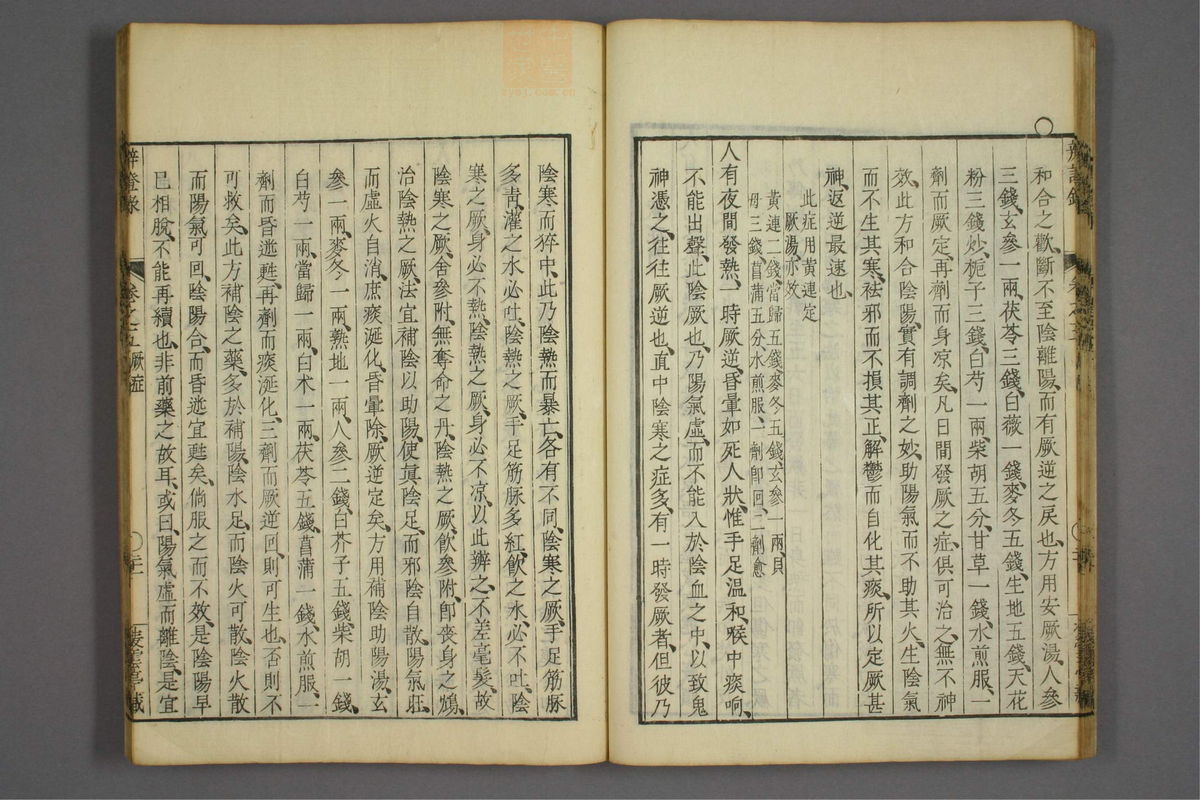 和合之歡、斷不至陰離陽、而有厥逆之戾也、方用安厥湯、人參
三錢、玄參一兩、茯苓三錢、白薇一錢、麥冬五錢、生地五錢、天花
粉三錢、炒梔子三錢、白芍一兩、柴胡五分、甘草一錢、水煎服、一
劑而厥定、再劑而身凉矣、凡日間發厥之症、俱可治之、無不神
效、此方和合陰陽、實有調劑之妙、助陽氣而不助其火、生陰氣
而不生其寒、祛邪而不損其正、解鬱而自化其痰、所以定厥甚
神、返逆最速也、
此症用黃連定
厥湯亦效
黃連二錢、當歸五錢、麥冬五錢、玄參一兩、貝
母三錢、菖蒲五分、水煎服、一劑卽回、二劑愈
人有夜間發熱、一時厥逆、昏暈如死人狀、惟手足溫和、喉中痰响、
不能出聲、此陰厥也、乃陽氣虛、而不能入於陰血之中、以致鬼
神憑之、往往厥逆也、直中陰寒之症多、有一時發厥者、但彼乃
陰寒而猝中、此乃陰熱而暴亡、各有不同、陰寒之厥、手足筋脉
多靑、灌之水必吐、陰熱之厥、手足筋脉多紅、飮之水、必不吐、陰
寒之厥、身必不熱、陰熱之厥、身必不凉、以此辨之、不差毫髮、故
陰寒之厥、舍參附、無奪命之丹、陰熱之厥、飮參附、卽喪身之鴆、
治陰熱之厥、法宜補陰以助陽、使眞陰足、而邪陰自散、陽氣旺、
而虛火自消、庶痰涎化、昏暈除、厥逆定矣、方用補陰助陽湯、玄
參一兩、麥冬一兩、熟地一兩、人參二錢、白芥子五錢、柴胡一錢、
白芍一兩、當歸一兩、白术一兩、茯苓五錢、菖蒲一錢、水煎服、一
劑而昏迷甦、再劑而痰涎化、三劑而厥逆回、則可生也、否則不
可救矣、此方補陰之藥、多於補陽、陰水足、而陰火可散、陰火散
而陽氣可回、陰陽合、而昏迷宜甦矣、倘服之而不效、是陰陽早
已相脫、不能再續也、非前藥之故耳、或曰、陽氣虛而離陰、是宜
辨證錄 卷之五 厥症